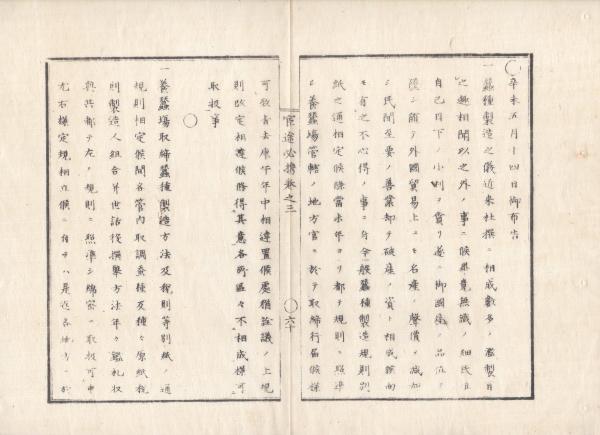 辛未五月十四日御布告
一蠶種製造之儀近来杜撰ニ相成數多ノ濫製日
之趣相聞以之外ノ事ニ候畢竟無識ノ細民
自己目下ノ小利ヲ貪リ遂ニ御國産ノ品位ヲ
シ隨テ外國貿易上ニモ名産ノ聲價ヲ減
シ民間至要ノ善業却テ破産ノ資ト相成候向
モ有之不心得ノ事ニ付今般蠶種製造規則別
紙之通相定候條當未年ヨリ都テ規則ニ照準
シ養蠶場管轄ノ地方官ニ於テ取締行届候樣
官途必携巻之三
六十
可致者去庚午年中相達置候處猶詮議ノ上規
則改定相達候條得其意各所區々不相成樣可
取扱事
一養蠶場取締蠶種製造方法及税則等別紙ノ通
規則相定候間各管内取調蚕種及種々原紙税
則製造人組合并世話役撰擧方法年々鑑札収
與共都テ左ノ規則ニ照準シ綿密ニ取扱可申
尤右樣定規相立候ニ付テハ是迄各地方ニ於